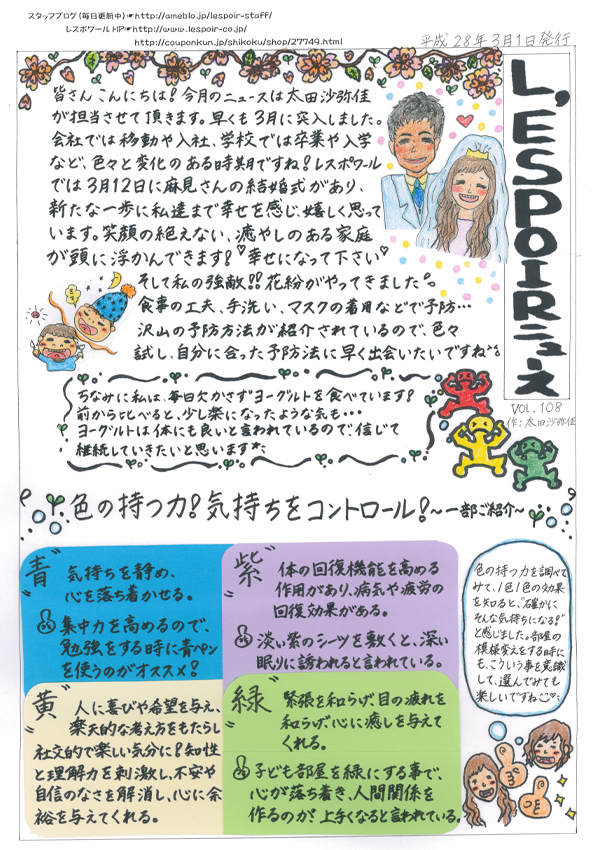 スタッフブログ(毎日更新中)☛http://ameblo.jp/lespoir-staff/
レスポワールHP☛http://www.lespoir-co.jp/
http://couponkun.jp/shikoku/shop/27749.html
平成28年3月1日発行
L'ESPOIRニュース
VOL.108
作:太田沙弥佳
皆さんこんにちは!今月のニュースは太田沙弥佳
が担当させて頂きます。早くも3月に突入しました。
会社では移動や入社、学校では卒業や入学
など、色々と変化のある時期ですね!レスポワール
では3月12日に麻見さんの結婚式があり、
新たな一歩に私達まで幸せを感じ、嬉しく思って
います。笑顔の絶えない、癒やしのある家庭
が頭に浮かんできます!♡幸せになって下さい♡
そして私の強敵!!花粉がやってきました。
食事の工夫、手洗い、マスクの着用などで予防…
沢山の予防方法が紹介されているので、色々
試し、自分に合った予防法に早く出会いたいですね。
ちなみに私は、毎日欠かさずヨーグルトを食べています!
前から比べると、少し楽になったような気も…
ヨーグルトは体にも良いと言われているので、信じて
継続していきたいと思います**
色の持つ力!気持ちをコントロール!~一部ご紹介~
"青"
気持ちを静め、
心を落ち着かせる。
集中力を高めるので、
勉強をする時に青ペン
を使うのがオススメ!
"紫"
体の回復機能を高める
作用があり、病気や疲労の
回復効果がある。
淡い紫のシーツを敷くと、深い
眠りに誘われると言われている。
"黄"
人に喜びや希望を与え、
楽天的な考え方をもたらし
社交的で楽しい気分に!知性
と理解力を刺激し、不安や
自信のなさを解消し、心に余
裕を与えてくれる。
"緑"
緊張を和らげ、目の疲れを
和らげ、心に癒しを与えて
くれる。
子ども部屋を緑にする事で、
心が落ち着き、人間関係を
作るのが上手くなると言われている。
色の持つ力を調べて
みて、1色1色の効果
を知ると、"確かに
そんな気持ちになる!"
と感じました。部屋の
模様変えをする時に
も、こういう事を意識
して、選んでみても
楽しいですね